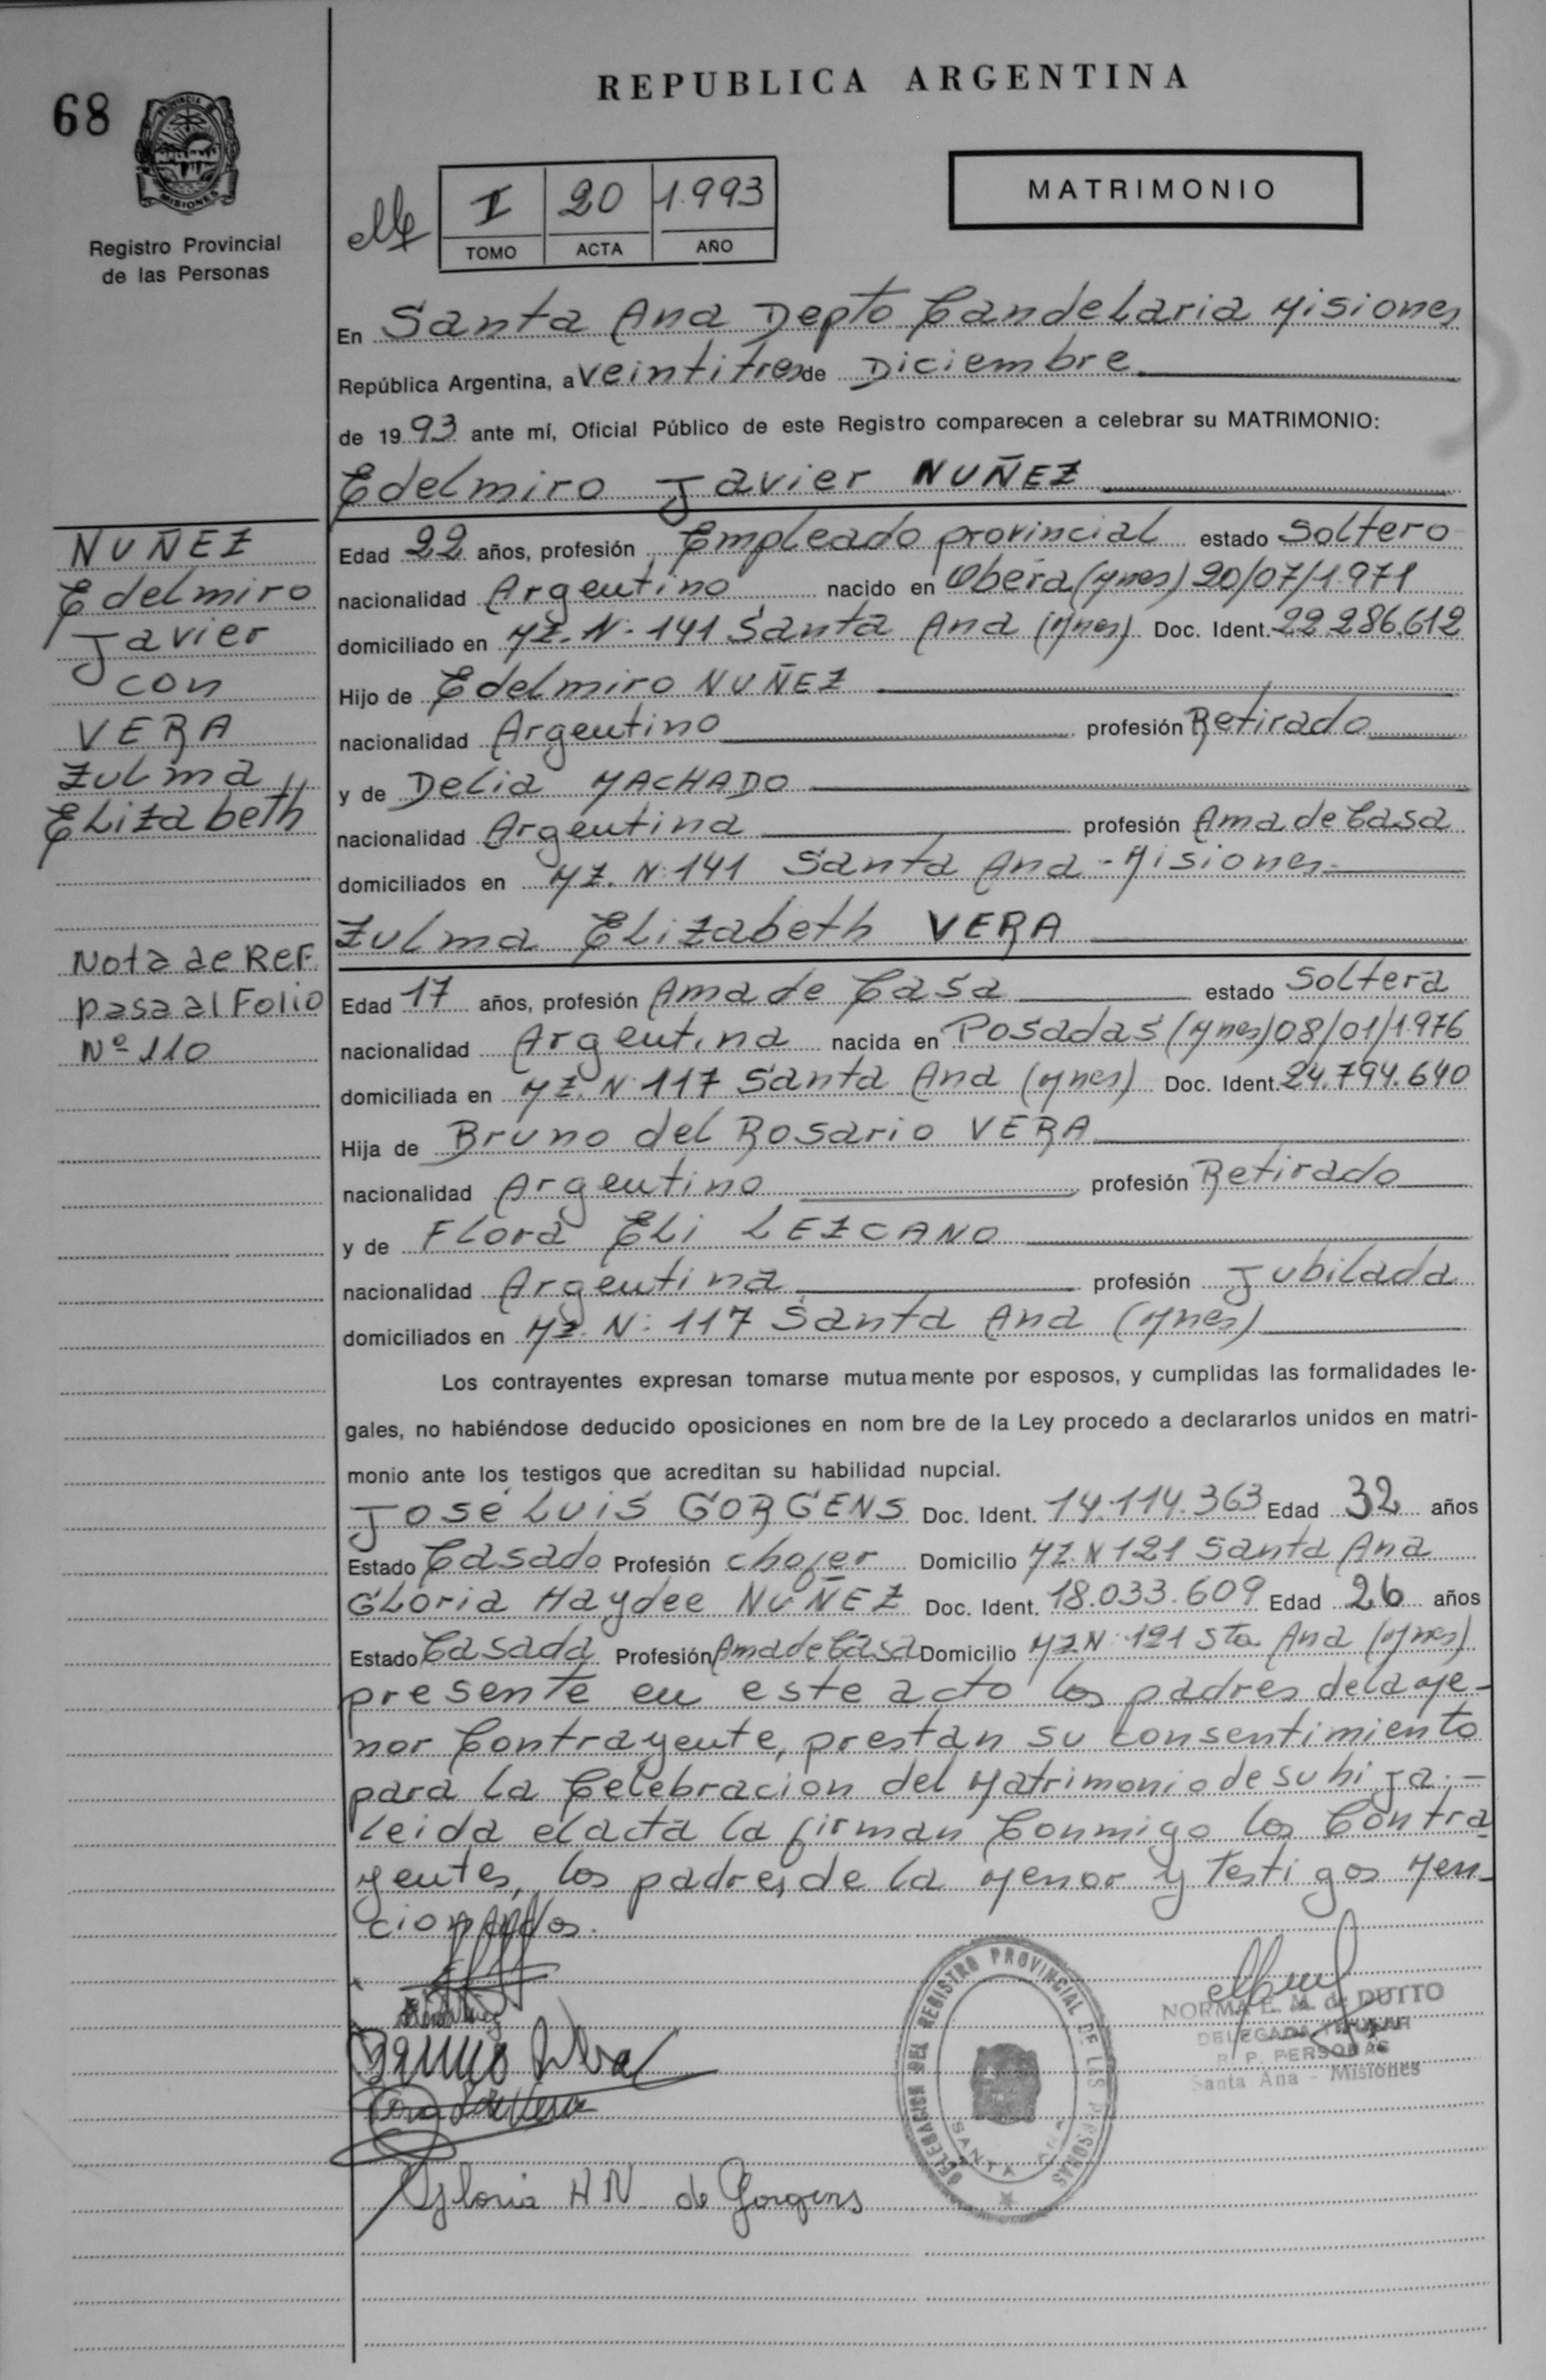 REPUBLICA ARGENTINA
68
PROVINCIA DE
MISIONES
Registro Provincial
de las Personas
I 20 1.993
TOMO ACTA AÑO
MATRIMONIO
En Santa Ana Depto Candelaria Misiones
República Argentina, a veintitres de Diciembre
de 1993 ante mí, Oficial Público de este Registro comparecen a celebrar su MATRIMONIO:
Edelmiro Javier NUÑEZ
NUÑEZ
Edelmiro
Javier
con
VERA
Zulma
Elizabeth
Nota de Ref.
pasa al Folio
Nº 110
Edad 22 años, profesión Empleado provincial estado Soltero
nacionalidad Argentino nacido en Oberá (Mnes) 20/07/1.971
domiciliado en MZ. N: 141 Santa Ana (Mnes) Doc. Ident. 22.286.612
Hijo de Edelmiro NUÑEZ
nacionalidad Argentino profesión Retirado
y de Delia MACHADO
nacionalidad Argentina profesión Ama de Casa
domiciliados en MZ. N: 141 Santa Ana - Misiones
Zulma Elizabeth VERA
Edad 17 años, profesión Ama de Casa estado Soltera
nacionalidad Argentina nacida en Posadas (Mnes) 08/01/1.976
domiciliada en MZ. N: 117 Santa Ana (Mnes) Doc. Ident. 24.794.640
Hija de Bruno del Rosario VERA
nacionalidad Argentino profesión Retirado
y de Flora Eli LEZCANO
nacionalidad Argentina profesión Jubilada
domiciliados en MZ. N: 117 Santa Ana (Mnes)
Los contrayentes expresan tomarse mutuamente por esposos, y cumplidas las formalidades le-
gales, no habiéndose deducido oposiciones en nom bre de la Ley procedo a declararlos unidos en matri-
monio ante los testigos que acreditan su habilidad nupcial.
José Luis GORGENS Doc. Ident. 14.114.363 Edad 32 años
Estado Casado Profesión chofer Domicilio MZ. N 121 Santa Ana
Gloria Haydee NUÑEZ Doc. Ident. 18.033.609 Edad 26 años
Estado Casada Profesión Ama de Casa Domicilio MZ. N: 121 Sta. Ana (Mnes)
presente en este acto los padres de la Me-
nor Contrayente, prestan su consentimiento
para la Celebracion del Matrimonio de su hija.-
leida el acta la firman Conmigo los Contra
yentes, los padres de la Menor y Testigos Men-
cionados.
Gloria H N de Gorgens
DELEGACION DEL REGISTRO PROVINCIAL DE LAS PERSONAS
SANTA ANA
NORMA E. M. de DUTTO
DELEGADA TITULAR
R. P. PERSONAS
Santa Ana - Misiones